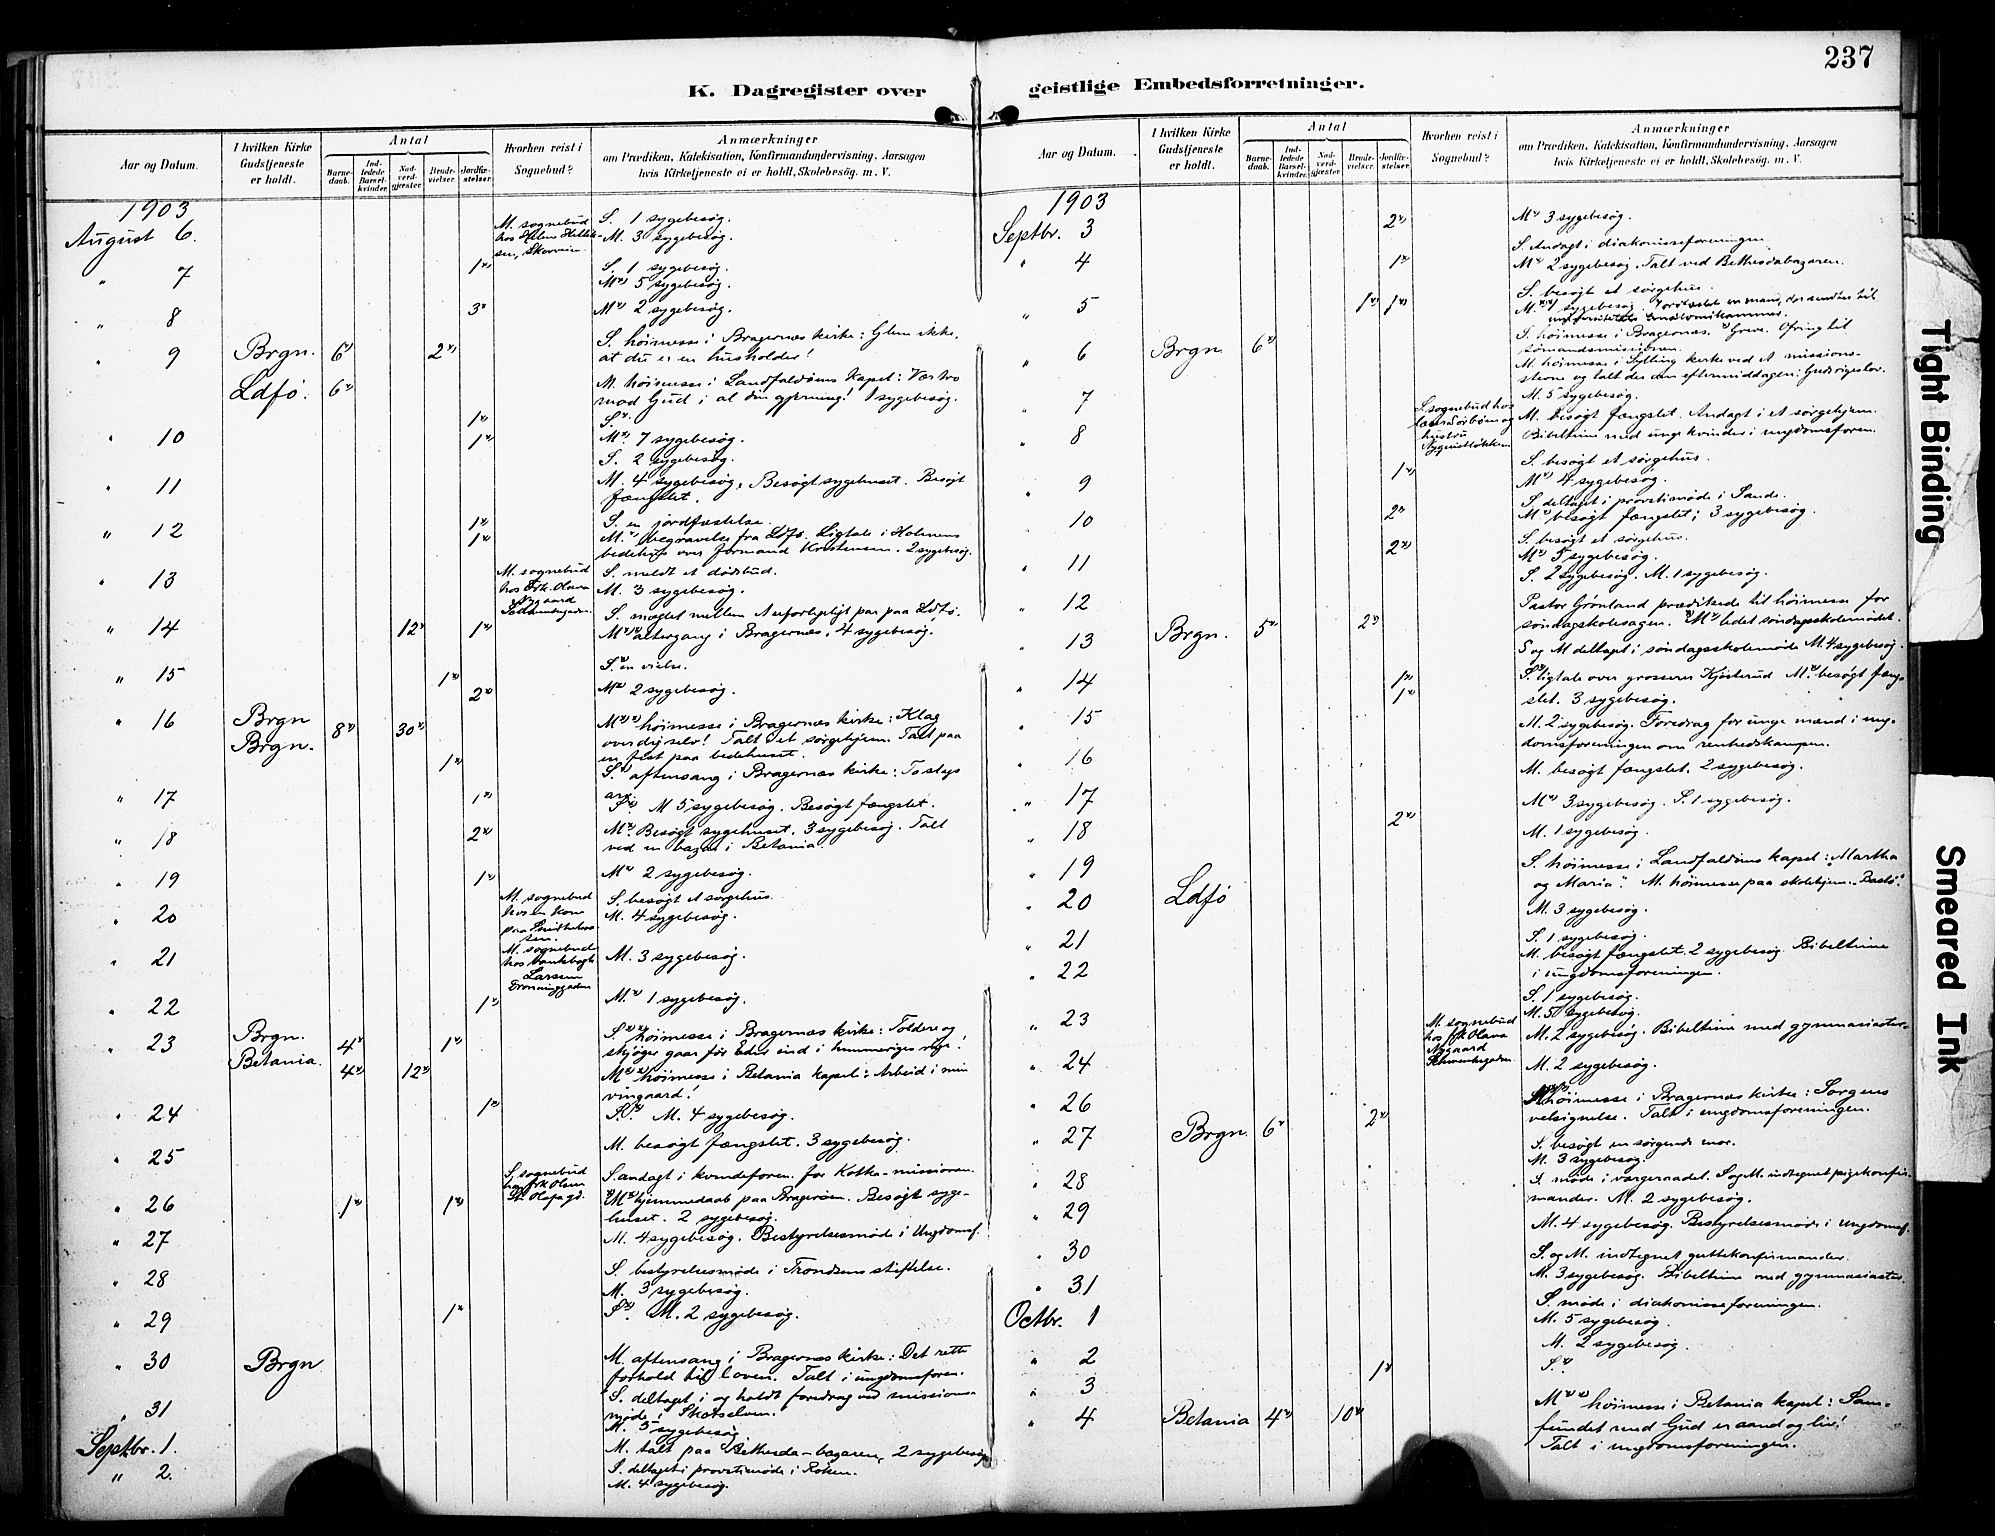 237
K. Dagregister over geistlige Embedsforretninger.
Aar og Datum.
I hvilken Kirke Gudstjeneste er holdt.
Antal
Barnedaab.
Indledede Barselkvinder.
Nadverdgjæster.
Brudevielser.
Jordfæstelser.
Hvorhen reist i Sognebud?
Anmærkninger
om Prædiken, Katekisation, Konfirmandundervisning, Aarsagen
hvis Kirketjeneste ei er holdt, Skolebesøg. m. V.
1903
August 6. M. sognebud S. 1 sygebesøg.
M. 3 sygebesøg.
7 1 S. 1 sygebesøg.
M. 5 sygebesøg.
8 3 M. 2 sygebesøg.
9 Brgn. 6 2 S. høimesse i Bragernæs kirke: Glem ikke,
at du er en husholder!
Ldfø. 6 M. høimesse i Landfaldøens Kapel: Vær tro
mod Gud i al din gjerning! 1 sygebesøg.
1 S.
10 1 M. 7 sygebesøg.
S. 2 sygebesøg.
11 M. 4 sygebesøg, Besøgt sygehuset. Besøgt
fængslet.
1 S. en jordfæstelse.
12 1 M. begravelse fra Ldfø. Ligtale i Holmens
bedehus over formand Kristensen. 2 sygebesøg.
13 M. sognebud S. meldt et dødsbud.
M. 3 sygebesøg.
S. mæglet mellem uforligeligt par paa Ldfø.
14 12 1 M. altergang i Bragernæs. 4 sygebesøg.
15 1 S. en vielse.
2 M. 2 sygebesøg.
16 Brgn 8 30 M. høimesse i Bragernæs kirke: Klag
Brgn. over dig selv! Talt i et sørgehjem. Talt paa
en fest paa bedehuset.
1 S. aftensang i Bragernæs kirke:
17 1 S. M 5 sygebesøg. Besøgt fængslet.
18 2 M. Besøgt sygehuset. 3 sygebesøg. Talt
ved en bazar i Betania.
19 1 M. 2 sygebesøg.
20 M. sognebud S. besøgt et sørgehus.
hos en kone M. 4 sygebesøg.
21 M. sognebud M. 3 sygebesøg.
Larssen
Dronninggaden
22 1 M. 1 sygebesøg.
23 Brgn. 4 1 S. høimesse i Bragernæs kirke: Toldere og
skjøger gaar før Eder ind i himmeriges rige!
Betania. 4 12 M. høimesse i Betania kapel: Arbeid i min
vingaard!
24 1 S. M. 4 sygebesøg.
25 M. besøgt fængslet. 3 sygebesøg.
S. sognebud S. andagt i kvindeforen. for
26 1 1 M. hjemmedaab paa Bragerøen. Besøgt syge-
huset. 2 sygebesøg.
27 M. 4 sygebesøg. Bestyrelsesmøde i Ungdomsf.
28 S. bestyrelsesmøde i Trondsens stiftelse.
M. 3 sygebesøg.
29 1 S. M. 2 sygebesøg.
30 Brgn M. aftensang i Bragernæs kirke: Det rette
forhold til loven. Talt i ungdomsforen.
31 S. deltaget i og holdt foredrag ved missions-
møde i Skotselven.
M. 5 sygebesøg
Septbr. 1. M. talt paa Bethesda-bazaren, 2 sygebesøg
2. S. deltaget i provstimøde i Røken.
M. 4 sygebesøg.
Aar og Datum.
I hvilken Kirke Gudstjeneste er holdt.
Antal
Barnedaab.
Indledede Barselkvinder.
Nadverdgjæster.
Brudevielser.
Jordfæstelser.
Hvorhen reist i Sognebud?
Anmærkninger
om Prædiken, Katekisation, Konfirmandundervisning, Aarsagen
hvis Kirketjeneste ei er holdt, Skolebesøg. m. V.
1903
Septbr. 3 2 M. 3 sygebesøg.
S. Andagt i diakonisseforeningen.
4 1 M. 2 sygebesøg. Talt ved Bethesdabazaren.
S. besøgt et sørgehus.
5 1 1 M. 1 sygebesøg. Jordfæstet en mand, der sendtes til
6 Brgn 6 S. høimesse i Bragernæs. Ofring til
sømandsmissionen.
M. høimesse i Sylling kirke ved et missions-
stevne og talt der om eftermiddagen:
7 M. 5 sygebesøg.
S. sognebud hos M. besøgt fængslet. Andagt i et sørgehjem.
8 Bibeltime med unge kvinder i ungdomsforen.
S. besøgt et sørgehus.
9 1 M. 4 sygebesøg.
S. deltaget i provstimøde i Sande.
10 2 M. besøgt fængslet; 3 sygebesøg.
S. besøgt et sørgehus.
11 2 M. 5 sygebesøg.
S. 2 sygebesøg. M. 1 sygebesøg.
12 Pastor Grønland prædikede til høimesse for
13 Brgn. 5 2 søndagsskolesagen. M. ledet søndagsskolemødet.
S og M deltaget i søndagsskolemøde M. 4 sygebesøg.
14 1 S. ligtale over grosserer Kjøsterud M. besøgt fæng-
1 slet. 3 sygebesøg.
15 M. 2 sygebesøg. Foredrag for unge mænd i ung-
domsforeningen om renhedskampen.
16 M. besøgt fængslet. 2 sygebesøg.
17 M. 3 sygebesøg. S. 1 sygebesøg.
18 2 M. 1 sygebesøg.
19 S. høimesse i Landfaldøens kapel: „Martha
20 Ldfø og Maria". M. høimesse paa skolehjem. „Bastø".
M. 3 sygebesøg.
21 S. 1 sygebesøg.
22 M. besøgt fængslet. 2 sygebesøg Bibeltime
i ungdomsforeningen.
S. 1 sygebesøg.
23 M. 5 sygebesøg.
M. sognebud M. 2 sygebesøg. Bibeltime med gymnasiaster.
hos frk Olava
Nygaard
24 M. 2 sygebesøg.
26 høimesse i Bragernæs kirke: Sorgens
27 Brgn. 6 2 velsignelse. Talt i ungdomsforeningen.
S. besøgt en sørgende mor.
M. 3 sygebesøg.
28 S. møde i værgeraadet. S og M. indtegnet pigekonfir-
mander. M. 2 sygebesøg.
29 M. 4 sygebesøg. Bestyrelsesmøde i Ungdomsf.
30 S. og M. indtegnet guttekonfirmander.
31 M. 3 sygebesøg. Bibeltime med gymnasiaster.
S. møde i diakonisseforeningen.
Octbr. 1 M. 5 sygebesøg.
2 M. 2 sygebesøg.
3 1 S.
4 Betania 4 10 M. høimesse i Betania kapel: Sam-
fundet med Gud er aand og liv!
Talt i ungdomsforeningen.
Tight Binding
Smeared Ink